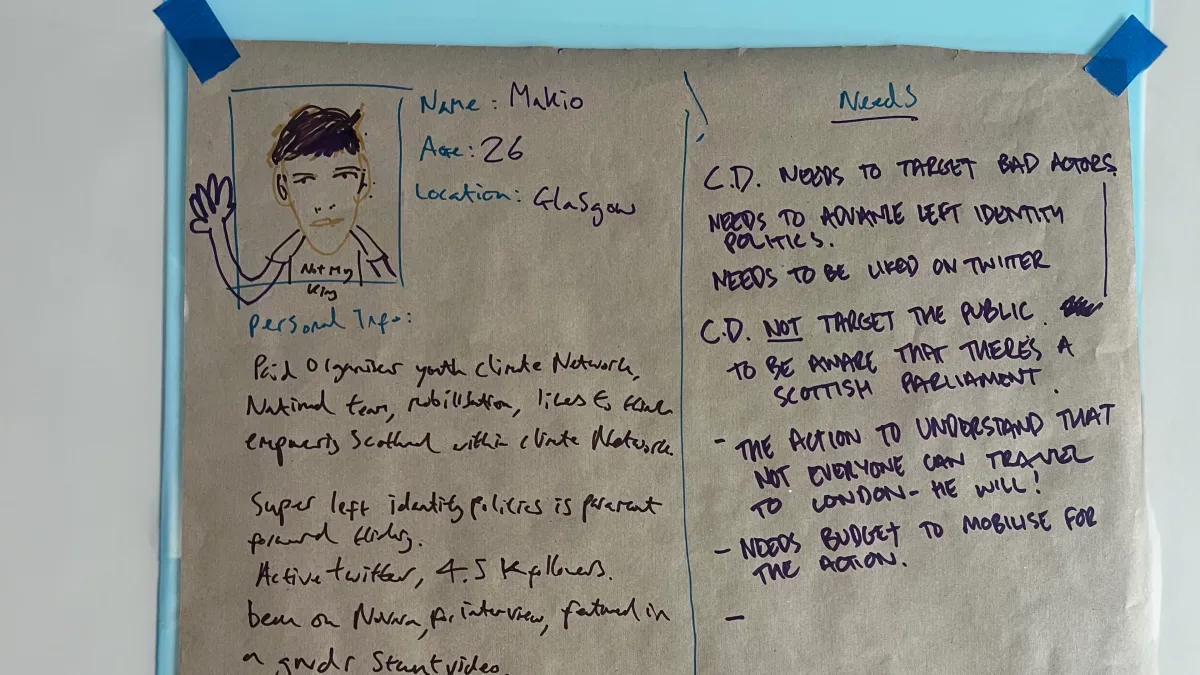 Name: Makio
Age: 26
Location: Glasgow
Not My
King
Personal Info:
Paid Organiser youth climate Network,
National team, mobilisation, likes to think
empowers Scotland within climate Network.
Super left identity policies is
forward
Active twitter, 4.5 K followers.
been on Novara, for interview, featured in
a gndr stunt video.
Needs
C.D. NEEDS TO TARGET BAD ACTORS
NEEDS TO ADVANCE LEFT IDENTITY
POLITICS.
NEEDS TO BE LIKED ON TWITTER
C.D. NOT TARGET THE PUBLIC.
TO BE AWARE THAT THERE'S A
SCOTTISH PARLIAMENT.
- THE ACTION TO UNDERSTAND THAT
NOT EVERYONE CAN TRAVEL
TO LONDON - HE WILL!
- NEEDS BUDGET TO MOBILISE FOR
THE ACTION.
-